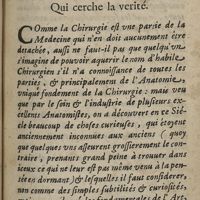 Qui cerche la verité.
COmme la Chirurgie est vne partie de la
Medecine qui n'en doit aucunement estre
detachée, aussi ne faut-il pas que quelqu'vn
s'imagine de pouvoir aquerir le nom d'habile
Chirurgien s'il n'a connoissance de toutes les
parties, & principalement de l'Anatomie
vnique fondement de la Chirurgie: mais veu
que par le soin & l'industrie de plusieurs ex-
cellens Anatomistes, on a découvers en ce Siè-
cle beaucoup de choses curieuses, qui étoyent
anciennement inconnuës aux anciens (quoy
que quelques vns asseurent grossierement le con-
traire, prenants grand peine à trouver dans
iceux ce qui ne leur est pas même venu à la pen-
sée en dormant) & lesquelles il faut considerer,
non comme des simples subtilités & curiosités,